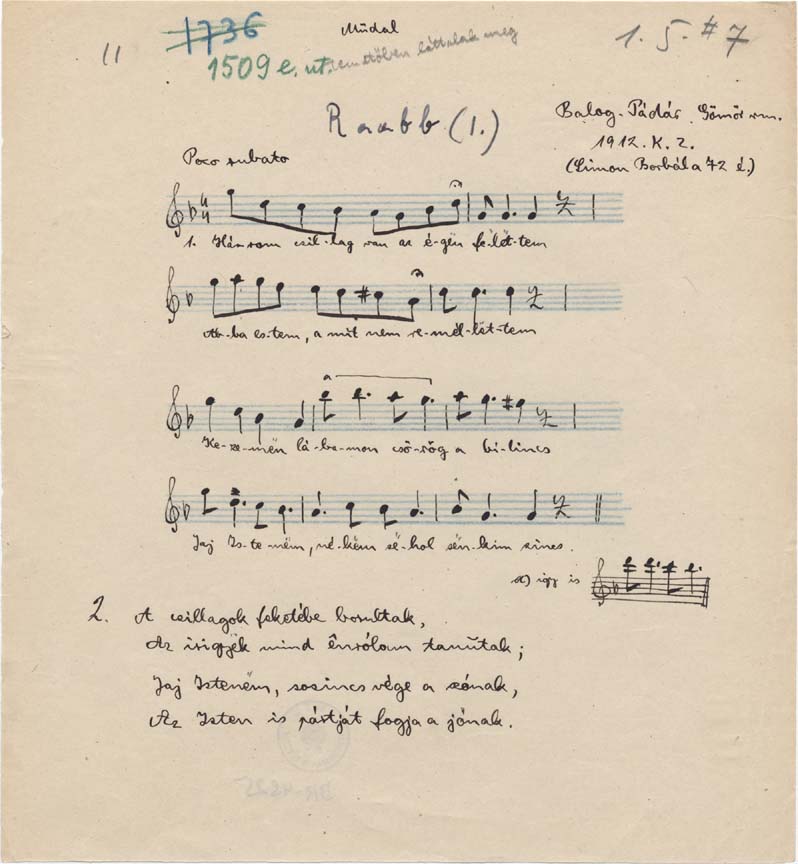 Műdal
1736
11
1. 5. #7
1509 e. ut.
temetőben láttalak meg
Raabb (1.)
Balog-Tádár Gömör vm.
1912. K. Z.
(Simon Borbála 72 é.)
Poco rubato
1. Három csil-lag van az é-gën fe-let-tem
Ab-ba es-tem, a mit nem re-mél-let-tem
Ke-ze-mën lá-bo-mon csö-rög a bi-lincs
Jaj Is-te-nëm, né-këm së-hol sën-kim sincs.
a) így is
2. A csillagok feketébe borultak,
Az irigyjék mind ënrólam tanútak;
Jaj Istenëm, sosincs vége a
Az Isten is pártját fogja a jónak.